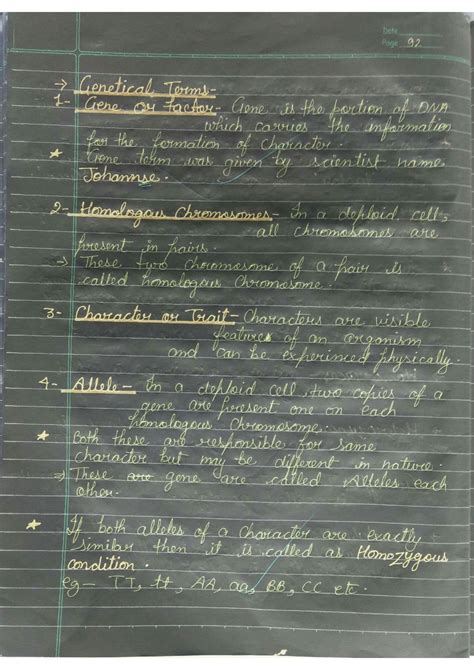 Date
Page 92
→ Genetical Terms-
1- Gene or Factor- Gene is the portion of DNA
which carries the information
for the formation of character.
★ Gene term was given by scientist name
Johannse.
2- Homologous Chromosomes- In a deploid cell,
all chromosomes are
present in pairs.
→ These two chromosome of a pair is
called homologous chromosome.
3- Character or Trait- Characters are visible
features of an organism
and can be experimed physically.
4- Allele- In a deploid cell two copies of a
gene are present one on each
homologous chromosome.
★ Both these are responsible for same
character but may be different in nature.
→ These are gene are called Alleles each
other.
★ If both alleles of a character are exactly
similar then it is called as Homozygous
condition.
eg- TT, tt, AA, aa, BB, CC etc.